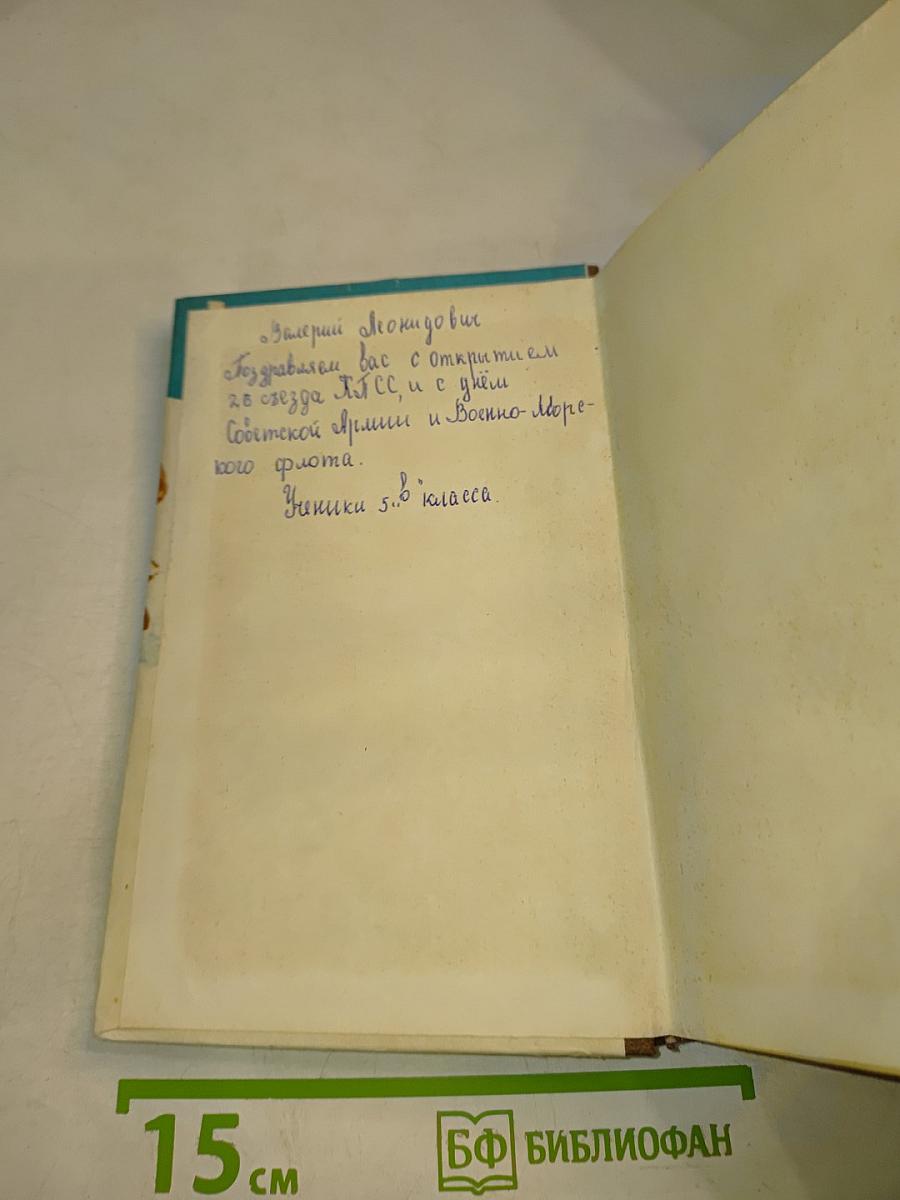 Валерий Леонидович
Поздравляем вас с открытием
25 съезда КПСС, и с днём
Советской Армии и Военно-Морс-
кого флота.
Ученики 5 „в" класса.
15 см
БФ БИБЛИОФАН